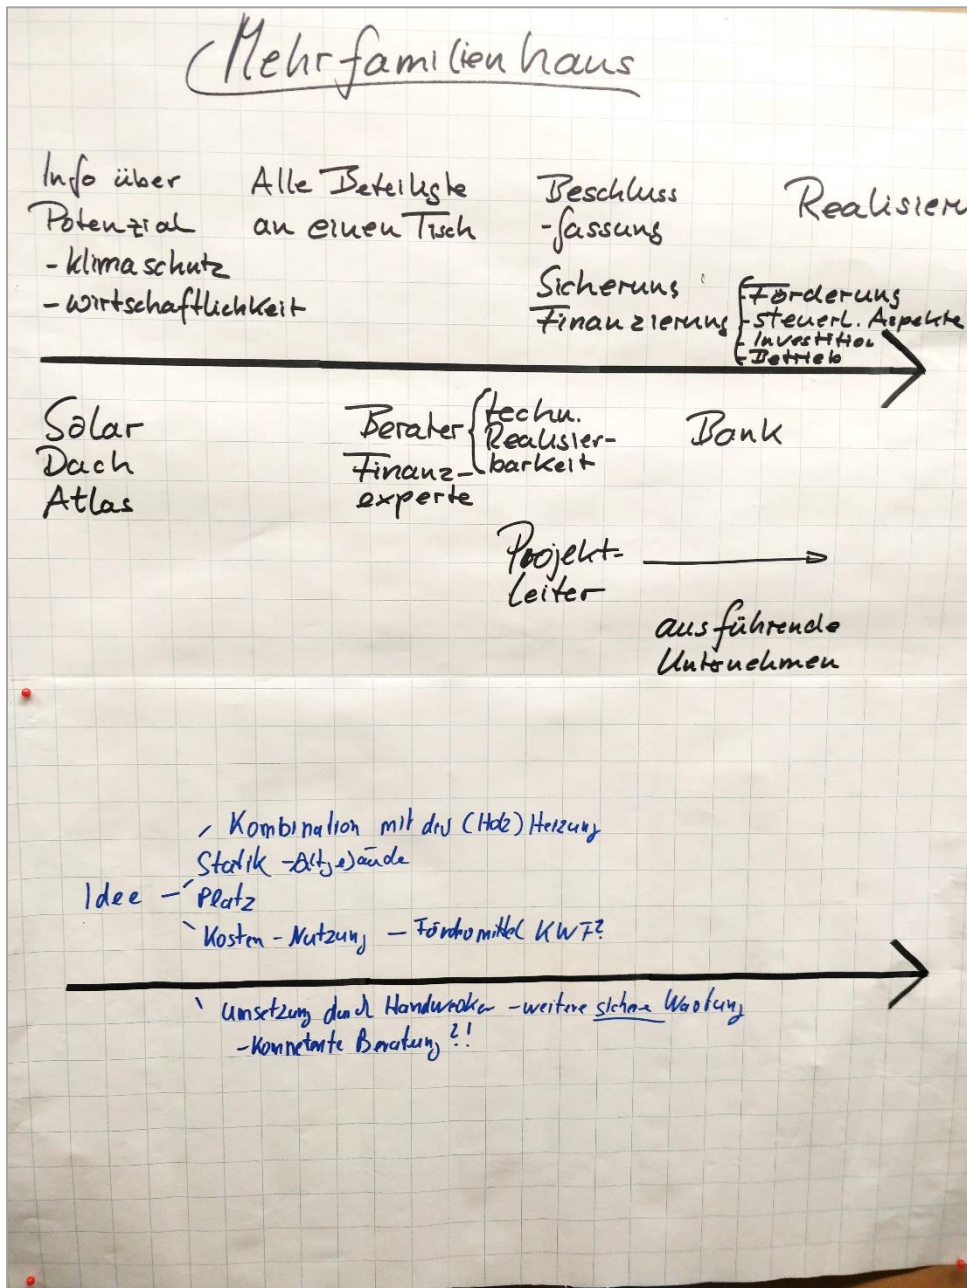 Mehrfamilienhaus
Info über
Potenzial
- Klimaschutz
- Wirtschaftlichkeit
Alle Beteiligte
an einen Tisch
Beschluss
-fassung
Sicherung
Finanzierung
Förderung
- steuerl. Aspekte
- Investition
- Betrieb
Realisieru
Solar
Dach
Atlas
Berater
Finanz-
experte
techn.
Realisier-
barkeit
Bank
Projekt-
Leiter
ausführende
Unternehmen
Kombination mit der (Holz) Heizung
Statik - Altgebäude
Idee - Platz
Kosten - Nutzung - Fördermittel KWF?
Umsetzung durch Handwerker - weitere sichere Wartung
- Kompetente Beratung?!